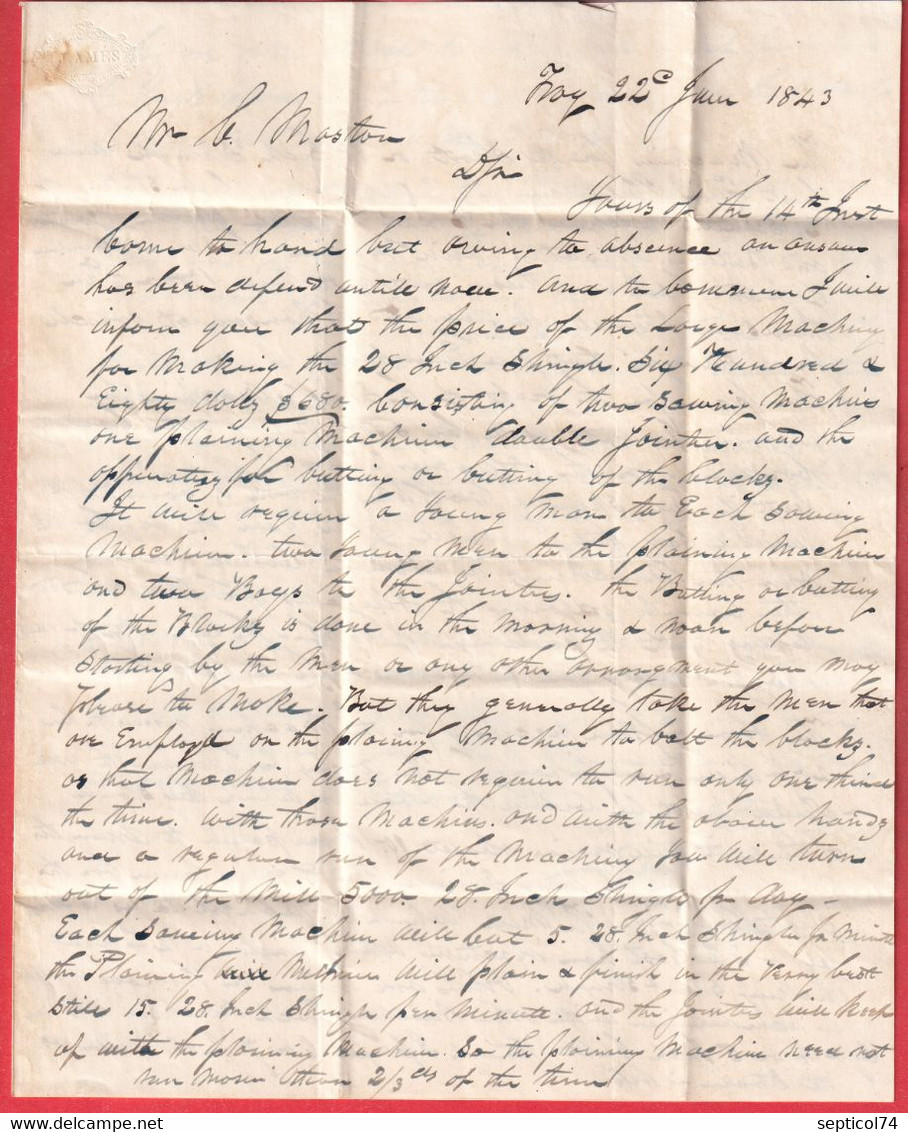 AMES
Troy 22d June 1843
Mr C. Moston
D Sir
Yours of the 14th Inst
Come to hand but owing to absence an answer
has been deferd untill now. And to commence I will
inform you that the price of the Large Machiney
for Making the 28 Inch Shingle. Six Hundred &
Eighty dolls $680. Consisting of two Sawing Machins
one plaining Machien double Jointer. and the
apperatus for butting or butting of the blocks.
It will requier a Young Man to Each Sawing
Machien. two Young Men to the plaining Machien
and two Boys to the Jointer. the Butting or butting
of the Blocks is done in the Morning & Noon before
Starting by the Men or any other arrangment you may
please to Make. But they generally take the Men that
are Employd on the plaining Machien to bolt the blocks.
as that Machien does not requier to run only one third
the time. With those Machins. and with the above hands
and a regular run of the Machiney You Will turn
out of the Mill 5000 28. Inch Shingle pr day –
Each Sawing Machien Will Cut 5. 28. Inch Shingle pr Minute
the Plaining Machien Will plain & finish in the Verry best
Stile 15. 28. Inch Shingle per Minute. and the Jointer Will Keep
up with the plaining Machien. So the plaining Machien need not
run More than 2/3ds of the time
septicol74